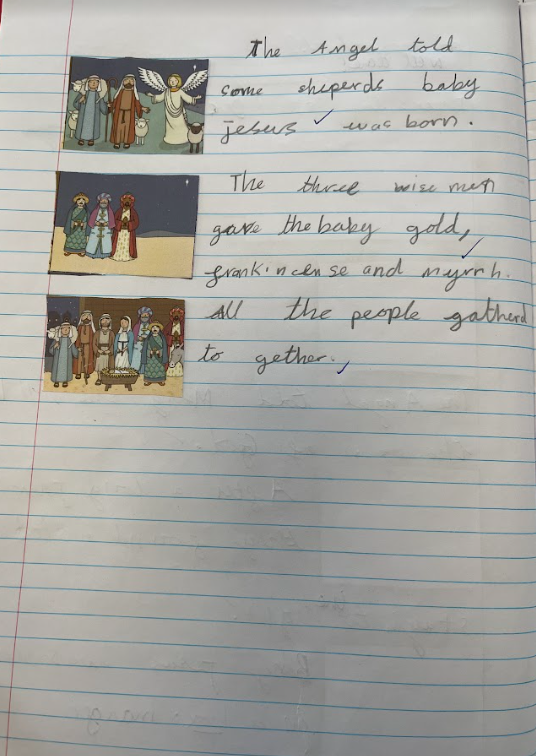 The Angel told
some sheperds baby
jesus was born.
The three wise men
gave the baby gold,
frankincense and myrrh.
All the people gatherd
to gether.